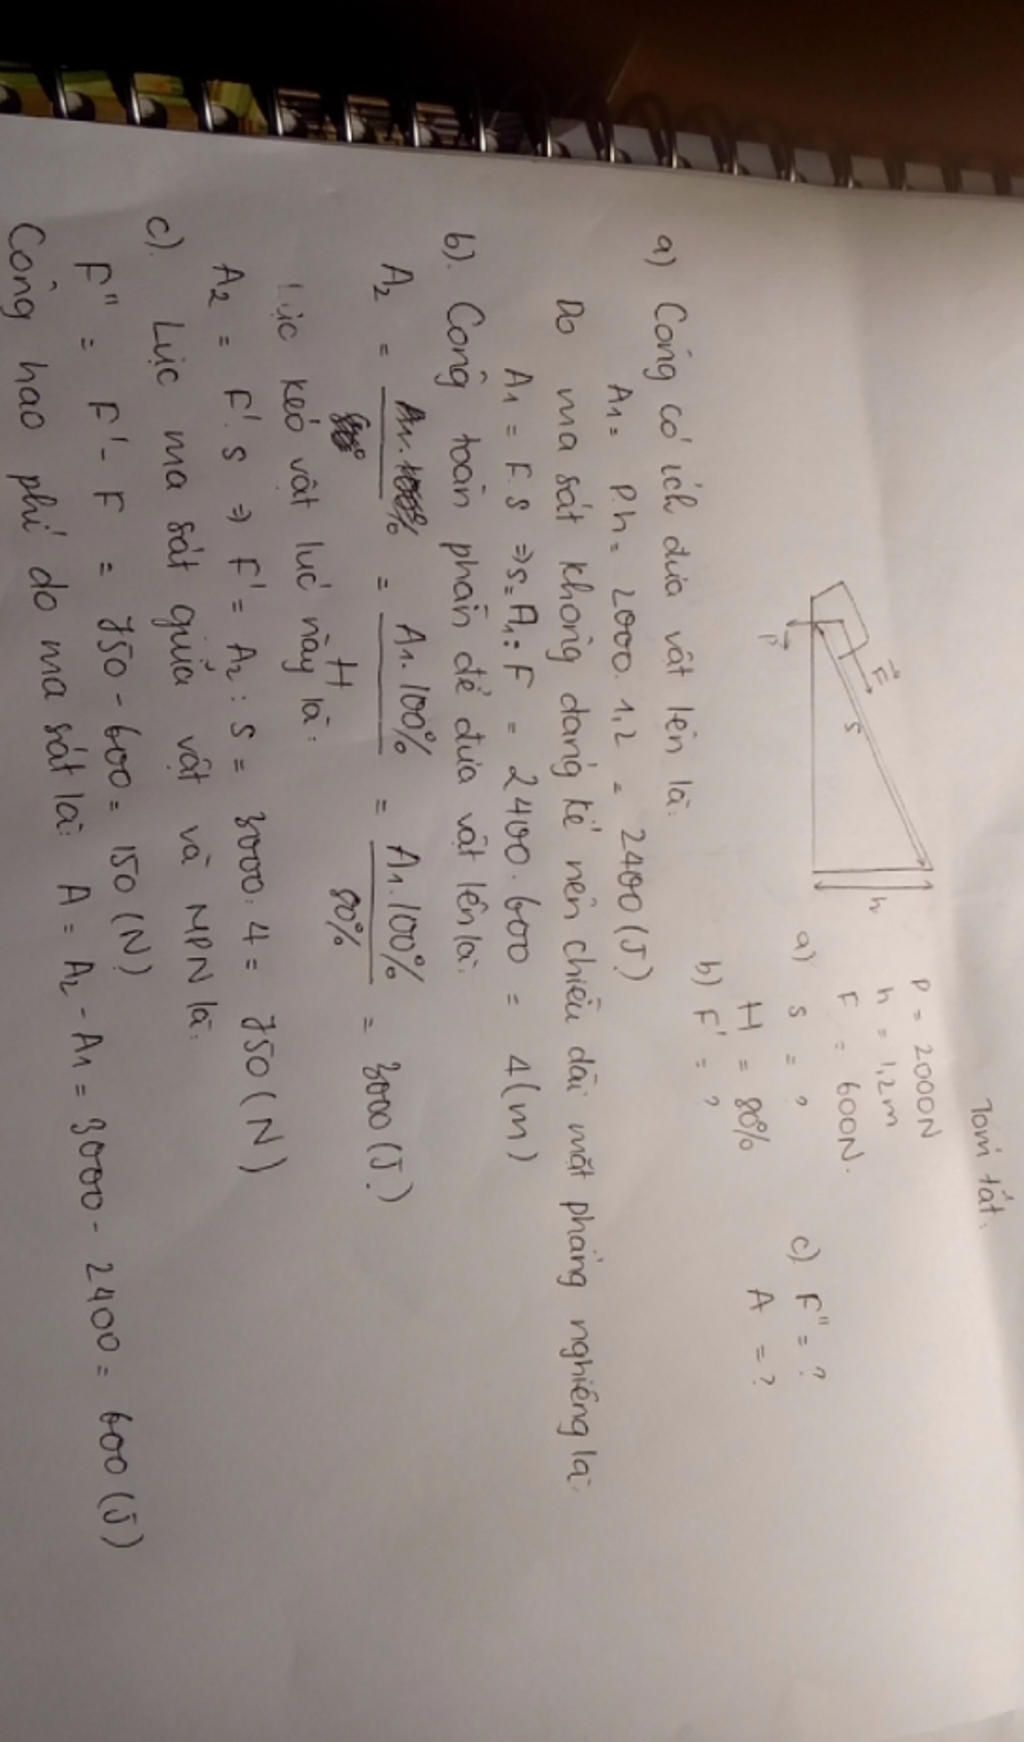 Tóm tắt:
P = 2000N
h = 1,2m
F = 600N.
a) s = ?
H = 80%
b) F' = ?
c) F" = ?
A = ?
F
s
h
P
a) Công có ích đưa vật lên là:
A1 = P.h = 2000.1,2 = 2400 (J)
Do ma sát không đáng kể nên chiều dài mặt phẳng nghiêng là:
A1 = F.s => s = A1 : F = 2400 : 600 = 4 (m)
b). Công toàn phần để đưa vật lên là:
A2 = = A1.100% / H = A1.100% / 80% = 3000 (J.)
Lực kéo vật lúc này là:
A2 = F'.s => F' = A2 : s = 3000 : 4 = 750 (N)
c). Lực ma sát giữa vật và MPN là:
F" = F' - F = 750 - 600 = 150 (N)
Công hao phí do ma sát là: A = A2 - A1 = 3000 - 2400 = 600 (J)